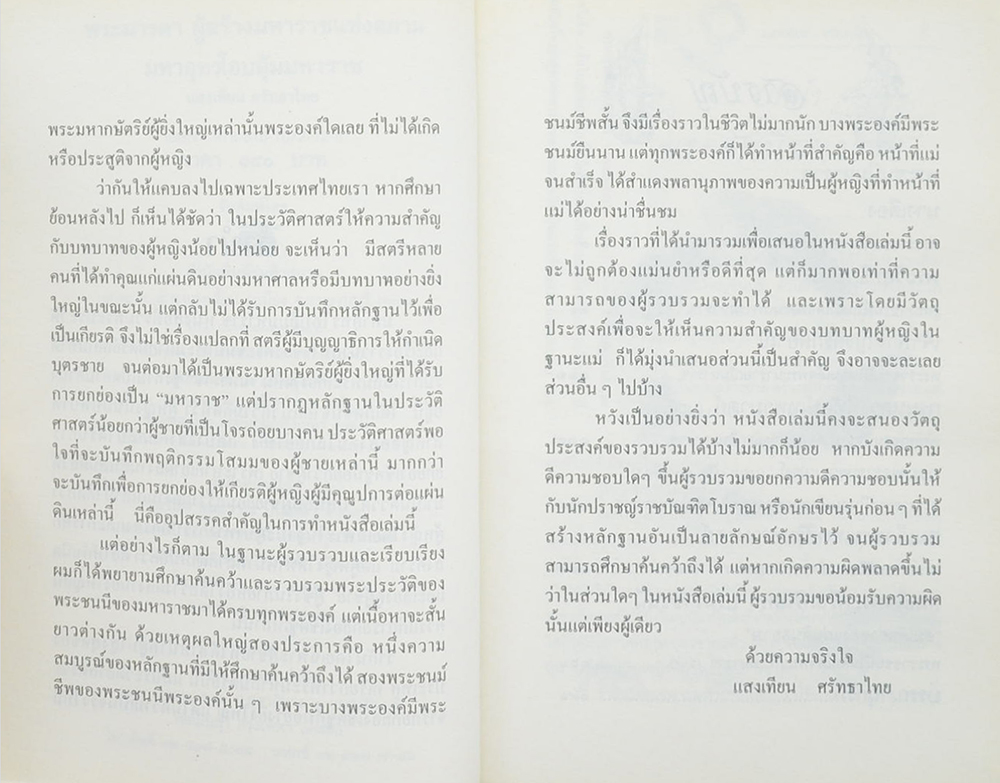 พระมหากษัตริย์ผู้ยิ่งใหญ่เหล่านั้นพระองค์ใดเลย ที่ไม่ได้เกิด
หรือประสูติจากผู้หญิง
ว่ากันให้แคบลงไปเฉพาะประเทศไทยเรา หากศึกษา
ย้อนหลังไป ก็เห็นได้ชัดว่า ในประวัติศาสตร์ให้ความสำคัญ
กับบทบาทของผู้หญิงน้อยไปหน่อย จะเห็นว่า มีสตรีหลาย
คนที่ได้ทำคุณแก่แผ่นดินอย่างมหาศาลหรือมีบทบาทอย่างยิ่ง
ใหญ่ในขณะนั้น แต่กลับไม่ได้รับการบันทึกหลักฐานไว้เพื่อ
เป็นเกียรติ จึงไม่ใช่เรื่องแปลกที่ สตรีผู้มีบุญญาธิการให้กำเนิด
บุตรชาย จนต่อมาได้เป็นพระมหากษัตริย์ผู้ยิ่งใหญ่ที่ได้รับ
การยกย่องเป็น “มหาราช” แต่ปรากฏหลักฐานในประวัติ
ศาสตร์น้อยกว่าผู้ชายที่เป็นโจรถ่อยบางคน ประวัติศาสตร์พอ
ใจที่จะบันทึกพฤติกรรมโสมมของผู้ชายเหล่านี้ มากกว่า
จะบันทึกเพื่อการยกย่องให้เกียรติผู้หญิงผู้มีคุณูปการต่อแผ่น
ดินเหล่านี้ นี่คืออุปสรรคสำคัญในการทำหนังสือเล่มนี้
แต่อย่างไรก็ตาม ในฐานะผู้รวบรวบและเรียบเรียง
ผมก็ได้พยายามศึกษาค้นคว้าและรวบรวมพระประวัติของ
พระชนนีของมหาราชมาได้ครบทุกพระองค์ แต่เนื้อหาจะสั้น
ยาวต่างกัน ด้วยเหตุผลใหญ่สองประการคือ หนึ่งความ
สมบูรณ์ของหลักฐานที่มีให้ศึกษาค้นคว้าถึงได้ สองพระชนม์
ชีพของพระชนนีพระองค์นั้น ๆ เพราะบางพระองค์มีพระ
ชนม์ชีพสั้น จึงมีเรื่องราวในชีวิตไม่มากนัก บางพระองค์มีพระ
ชนม์ยืนนาน แต่ทุกพระองค์ก็ได้ทำหน้าที่สำคัญคือ หน้าที่แม่
จนสำเร็จ ได้สำแดงพลานุภาพของความเป็นผู้หญิงที่ทำหน้าที่
แม่ได้อย่างน่าชื่นชม
เรื่องราวที่ได้นำมารวมเพื่อเสนอในหนังสือเล่มนี้ อาจ
จะไม่ถูกต้องแม่นยำหรือดีที่สุด แต่ก็มากพอเท่าที่ความ
สามารถของผู้รวบรวมจะทำได้ และเพราะโดยมีวัตถุ
ประสงค์เพื่อจะให้เห็นความสำคัญของบทบาทผู้หญิงใน
ฐานะแม่ ก็ได้มุ่งนำเสนอส่วนนี้เป็นสำคัญ จึงอาจจะละเลย
ส่วนอื่น ๆ ไปบ้าง
หวังเป็นอย่างยิ่งว่า หนังสือเล่มนี้คงจะสนองวัตถุ
ประสงค์ของรวบรวมได้บ้างไม่มากก็น้อย หากบังเกิดความ
ดีความชอบใดๆ ขึ้นผู้รวบรวมขอยกความดีความชอบนั้นให้
กับนักปราชญ์ราชบัณฑิตโบราณ หรือนักเขียนรุ่นก่อน ๆ ที่ได้
สร้างหลักฐานอันเป็นลายลักษณ์อักษรไว้ จนผู้รวบรวม
สามารถศึกษาค้นคว้าถึงได้ แต่หากเกิดความผิดพลาดขึ้นไม่
ว่าในส่วนใดๆ ในหนังสือเล่มนี้ ผู้รวบรวมขอน้อมรับความผิด
นั้นแต่เพียงผู้เดียว
ด้วยความจริงใจ
แสงเทียน ศรัทธาไทย